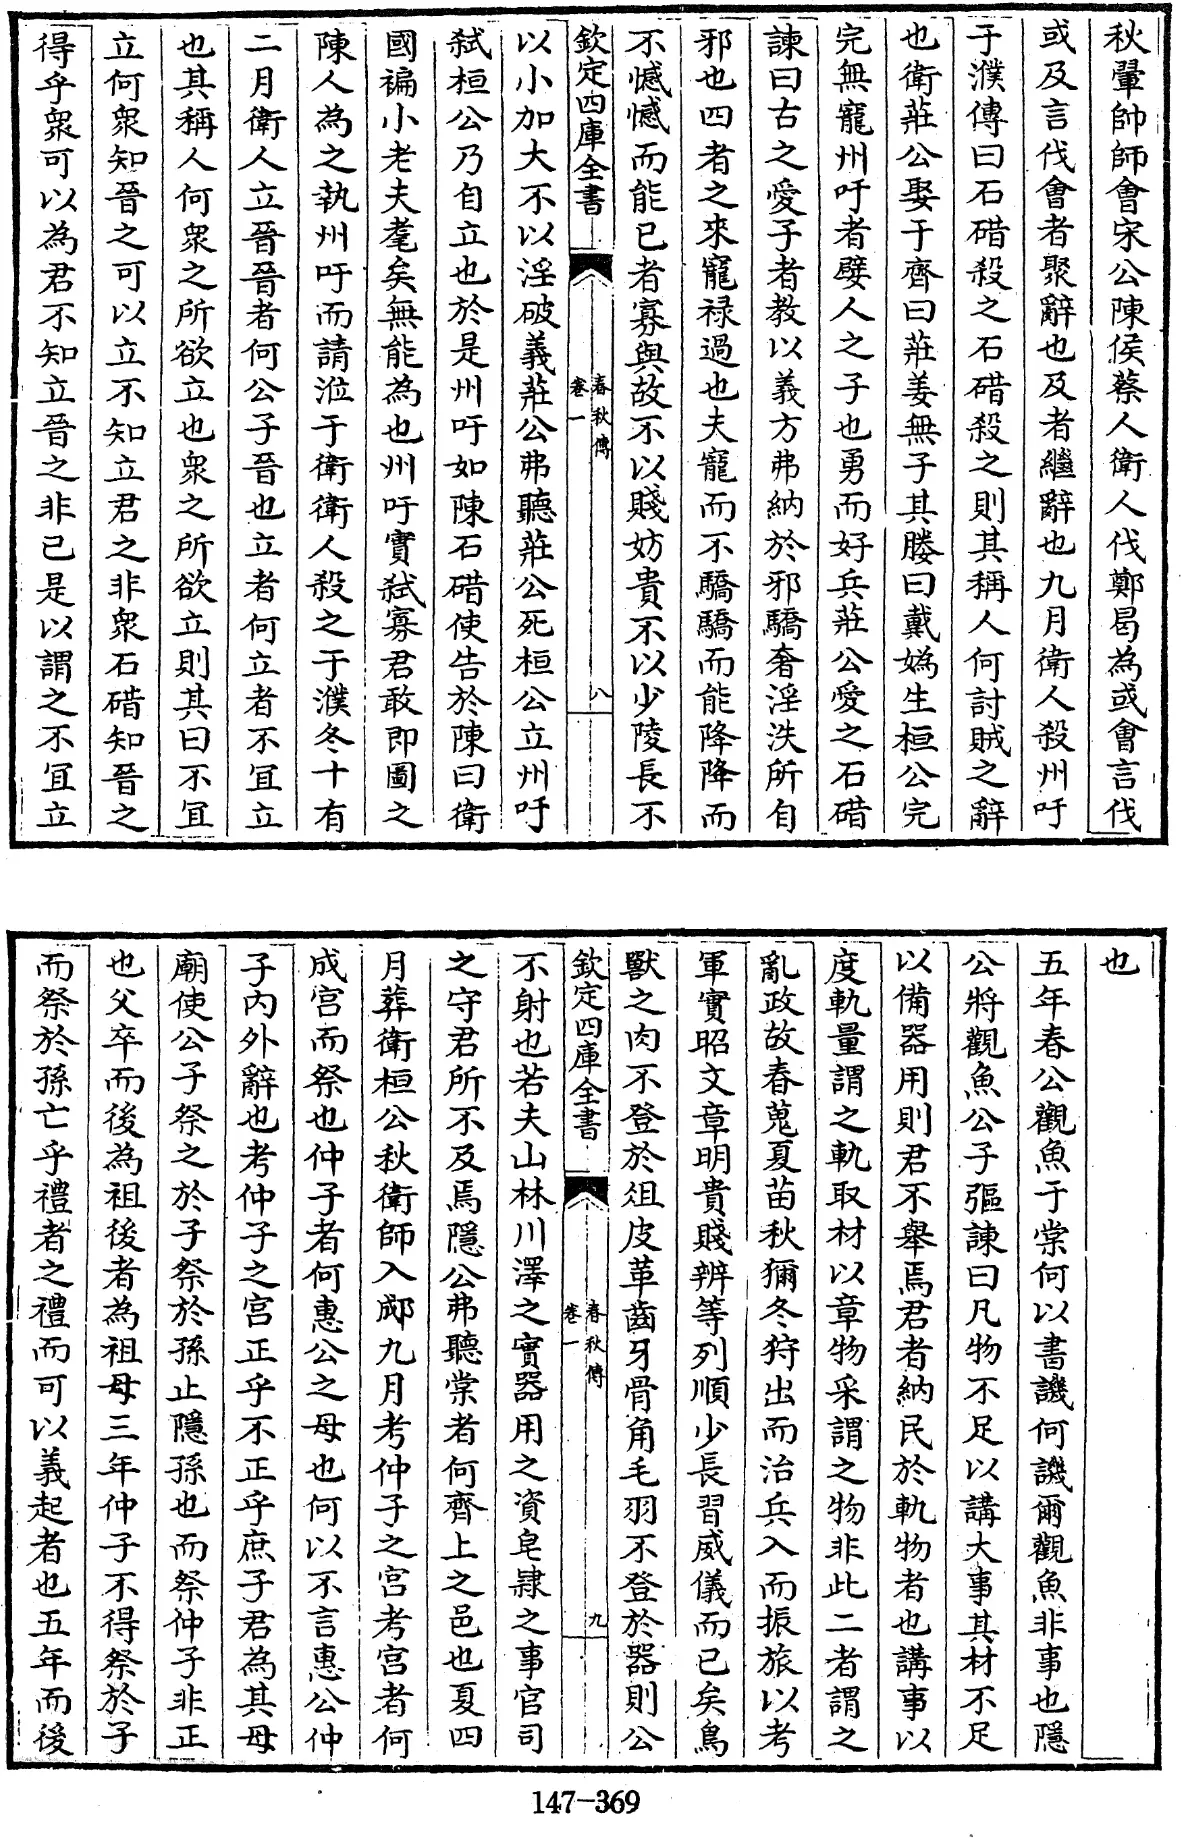 秋翬帥師會宋公陳侯蔡人衛人伐鄭曷為或會言伐
或及言伐會者聚辭也及者繼辭也九月衛人殺州吁
于濮傳曰石碏殺之石碏殺之則其稱人何討賊之辭
也衛莊公娶于齊曰莊姜無子其媵曰戴媯生桓公完
完無寵州吁者嬖人之子也勇而好兵莊公愛之石碏
諫曰古之愛子者教以義方弗納於邪驕奢淫泆所自
邪也四者之來寵禄過也夫寵而不驕驕而能降降而
不憾憾而能已者寡與故不以賤妨貴不以少陵長不
欽定四庫全書
春秋傳
卷一
八
以小加大不以淫破義莊公弗聽莊公死桓公立州吁
弑桓公乃自立也於是州吁如陳石碏使告於陳曰衛
國褊小老夫耄矣無能為也州吁實弑寡君敢即圖之
陳人為之執州吁而請涖于衛衛人殺之于濮冬十有
二月衛人立晉晉者何公子晉也立者何立者不冝立
也其稱人何衆之所欲立也衆之所欲立則其曰不冝
立何衆知晉之可以立不知立君之非衆石碏知晉之
得乎衆可以為君不知立晉之非已是以謂之不冝立
也
五年春公觀魚于棠何以書譏何譏爾觀魚非事也隱
公將觀魚公子彄諫曰凡物不足以講大事其材不足
以備器用則君不舉焉君者納民於軌物者也講事以
度軌量謂之軌取材以章物采謂之物非此二者謂之
亂政故春蒐夏苗秋獮冬狩出而治兵入而振旅以考
軍實昭文章明貴賤辨等列順少長習威儀而已矣鳥
獸之肉不登於俎皮革齒牙骨角毛羽不登於器則公
欽定四庫全書
春秋傳
卷一
九
不射也若夫山林川澤之實器用之資皂隸之事官司
之守君所不及焉隱公弗聽棠者何齊上之邑也夏四
月葬衛桓公秋衛師入郕九月考仲子之宮考宮者何
成宮而祭也仲子者何惠公之母也何以不言惠公仲
子内外辭也考仲子之宮正乎不正乎庶子君為其母
廟使公子祭之於子祭於孫止隱孫也而祭仲子非正
也父卒而後為祖後者為祖母三年仲子不得祭於子
而祭於孫亡乎禮者之禮而可以義起者也五年而後
147-369